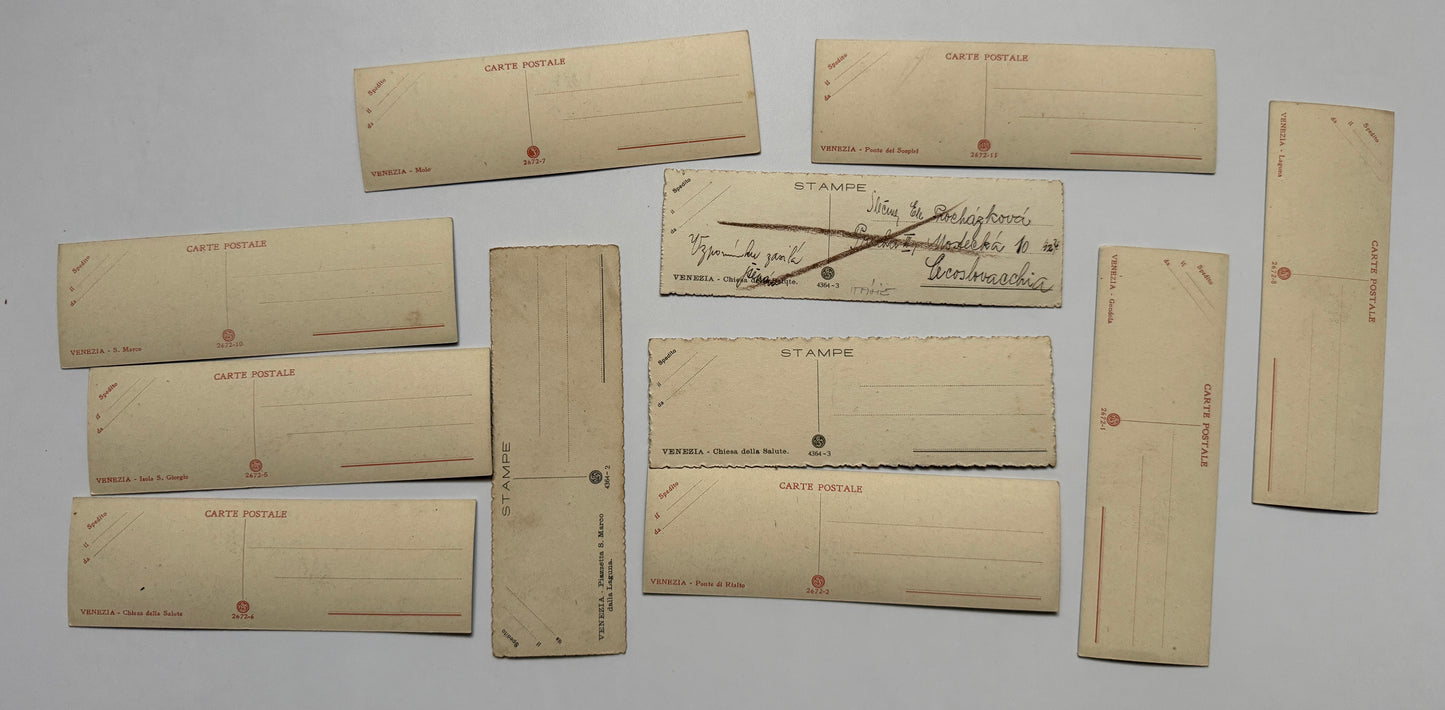 CARTE POSTALE
Spedito
il
da
2672-7
VENEZIA - Molo
CARTE POSTALE
Spedito
il
da
2672-11
VENEZIA - Ponte dei Sospiri
Spedito
il
da
VENEZIA - Laguna
CARTE POSTALE
2672-8
STAMPE
Spedito
il
da
Slečny
Procházková
Praha III, Mostecká 10
Cecoslovacchia
Vzpomínku zasílá
VENEZIA - Chiesa della Salute.
4364-3
ITALIE
CARTE POSTALE
Spedito
il
da
2672-10
VENEZIA - S. Marco
CARTE POSTALE
Spedito
il
da
2672-5
VENEZIA - Isola S. Giorgio
CARTE POSTALE
Spedito
il
da
2672-6
VENEZIA - Chiesa della Salute
STAMPE
4364-2
VENEZIA - Piazzetta S. Marco
dalla Laguna.
Spedito
il
da
STAMPE
Spedito
il
da
VENEZIA - Chiesa della Salute.
4364-3
CARTE POSTALE
Spedito
il
da
VENEZIA - Ponte di Rialto
2672-2
Spedito
il
da
VENEZIA - Gondola
CARTE POSTALE
2672-1